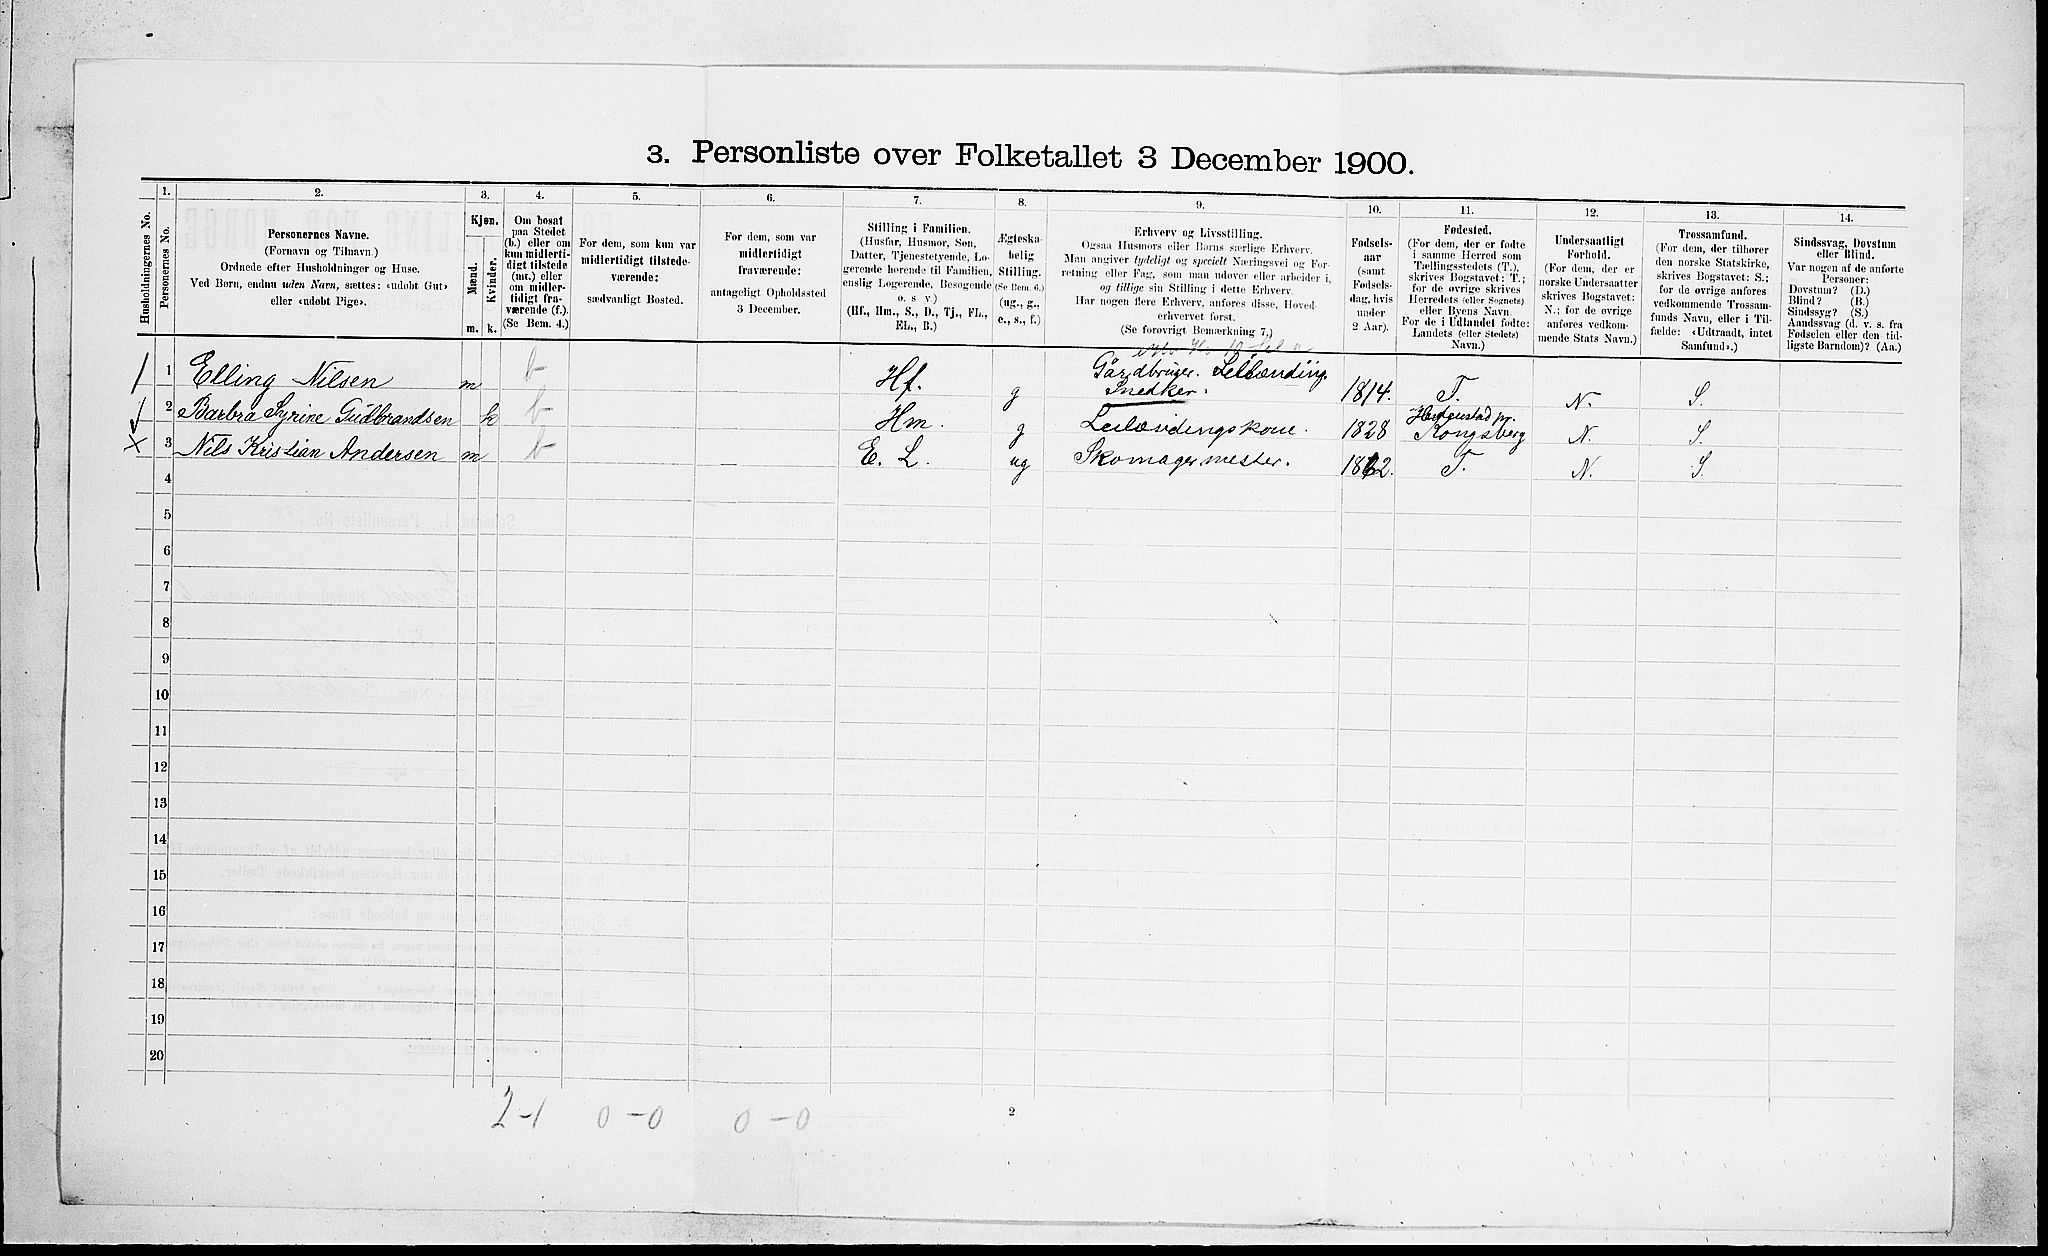 3. Personliste over Folketallet 3 December 1900.
1. 2. 3. 4. 5. 6. 7. 8. 9. 10. 11. 12. 13. 14.
Husholdningernes No.
Personernes No.
Personernes Navne.
(Fornavn og Tilnavn.)
Ordnede efter Husholdninger og Huse.
Ved Børn, endnu uden Navn, sættes: «udøbt Gut»
eller «udøbt Pige».
Kjøn.
Mænd.
Kvinder.
m. k.
Om bosat
paa Stedet
(b.) eller om
kun midlerti-
digt tilstede
(mt.) eller
om midler-
tidigt fra-
værende (f.).
(Se Bem. 4.)
For dem, som kun var
midlertidigt tilstede-
værende:
sædvanligt Bosted.
For dem, som var
midlertidigt
fraværende:
antageligt Opholdssted
3 December.
Stilling i Familien.
(Husfar, Husmor, Søn,
Datter, Tjenestetyende, Lo-
gerende hørende til Familien,
enslig Logerende, Besøgende
o. s. v.)
(Hf., Hm., S., D., Tj., FL.,
EL., B.)
Ægteska-
belig
Stilling.
(Se Bem. 6.)
(ug., g.,
e., s., f.)
Erhverv og Livsstilling.
Ogsaa Husmors eller Børns særlige Erhverv.
Man angiver tydeligt og specielt Næringsvei og For-
retning eller Fag, som man udøver eller arbeider i,
og tillige sin Stilling i dette Erhverv.
Har nogen flere Erhverv, anføres disse, Hoved-
erhvervet først.
(Se forøvrigt Bemærkning 7.)
Fødsels-
aar
(samt
Fødsels-
dag, hvis
under
2 Aar).
Fødested.
(For dem, der er fødte
i samme Herred som
Tællingsstedets (T.),
skrives Bogstavet: T.;
for de øvrige skrives
Herredets (eller Sognets)
eller Byens Navn.
For de i Udlandet fødte:
Landets (eller Stedets)
Navn.)
Undersaatligt
Forhold.
(For dem, der er
norske Undersaatter
skrives Bogstavet:
N.; for de øvrige
anføres vedkom-
mende Stats Navn.)
Trossamfund.
(For dem, der tilhører
den norske Statskirke,
skrives Bogstavet: S.;
for de øvrige anføres
vedkommende Trossam-
funds Navn, eller i Til-
fælde: «Udtraadt, intet
Samfund».)
Sindssvag, Døvstum
eller Blind.
Var nogen af de anførte
Personer:
Døvstum? (D.)
Blind? (B.)
Sindssyg? (S.)
Aandssvag (d. v. s. fra
Fødselen eller den tid-
ligste Barndom)? (Aa.)
1 Elling Nilsen m b Hf. g Gårdbruger. Leilænding. Snedker. 1814. T. N. S.
2 Barbra Syrine Gudbrandsen k b Hm. g Leilændingskone. 1828 Kongsberg N. S.
3 Nils Kristian Andersen m b — E. L. ug Skomagermester. 1862. T. N. S.
4
5
6
7
8
9
10
11
12
13
14
15
16
17
18
19
20
2-1 0-0 0-0
2